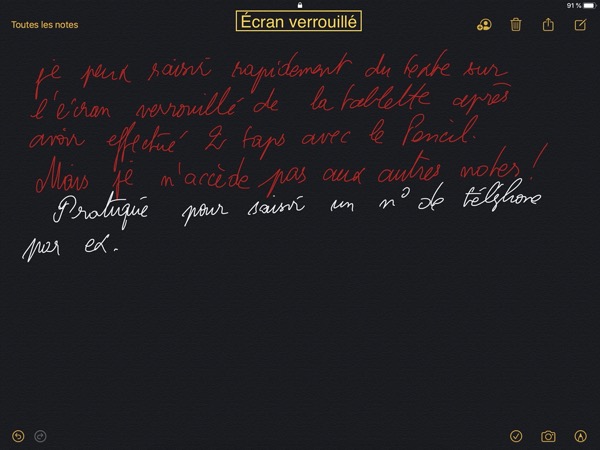 91 %
Toutes les notes
Écran verrouillé
je peux saisir rapidement du texte sur
l'écran verrouillé de la tablette après
avoir effectué 2 taps avec le Pencil.
Mais je n'accède pas aux autres notes !
Pratique pour saisir un n° de téléphone
par ex.